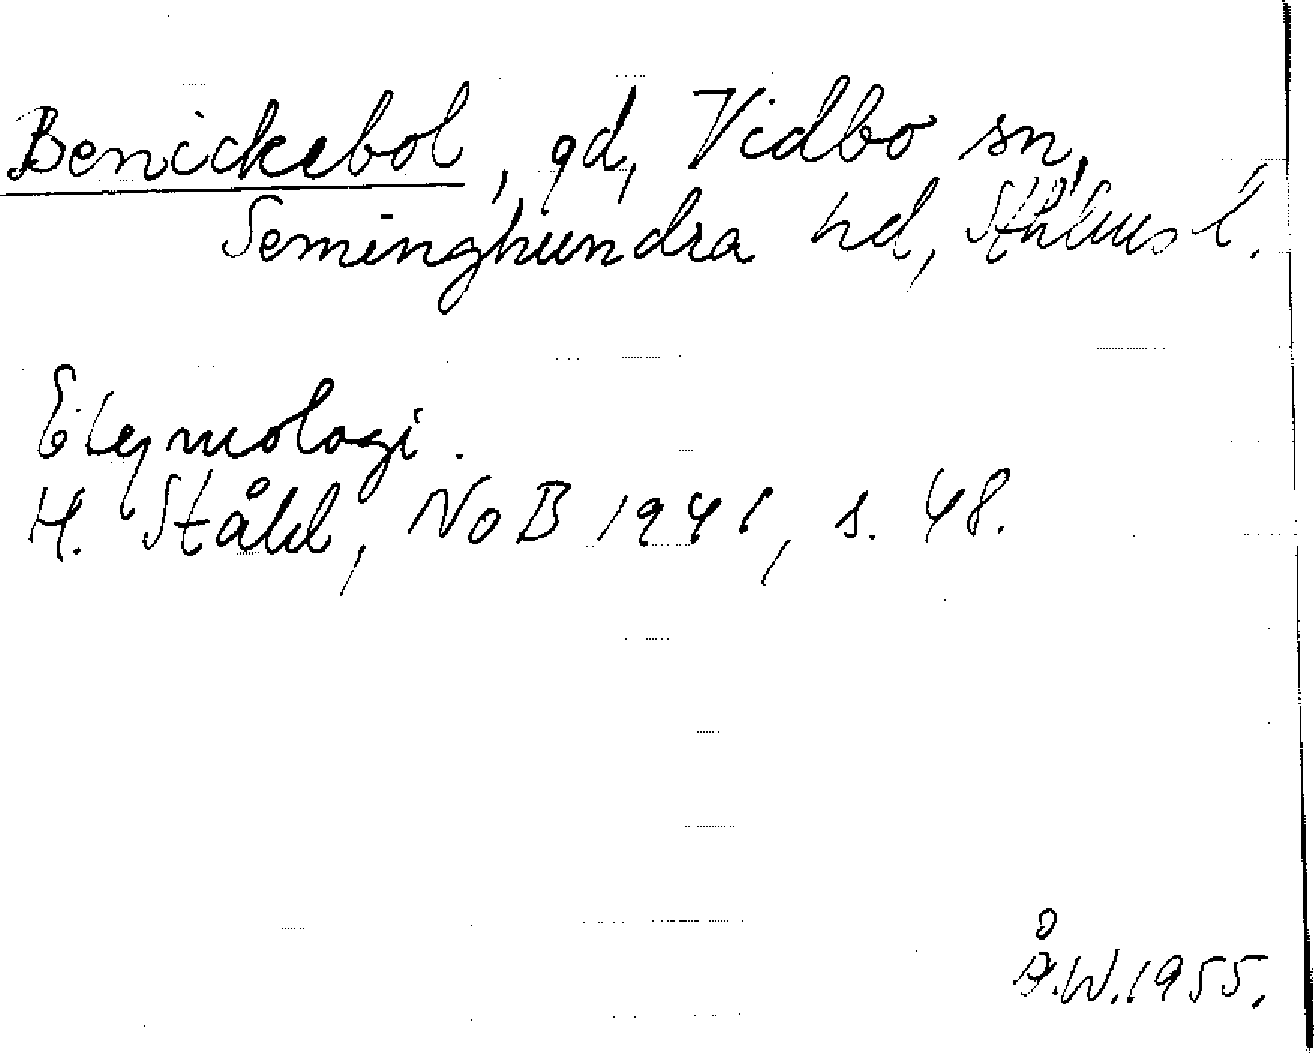 Benickebol, gd, Vidbo sn,
Seminghundra hd, Sthlms l.
Etymologi.
H. Ståhl, NoB 1941, s. 48.
Å.W. 1955.